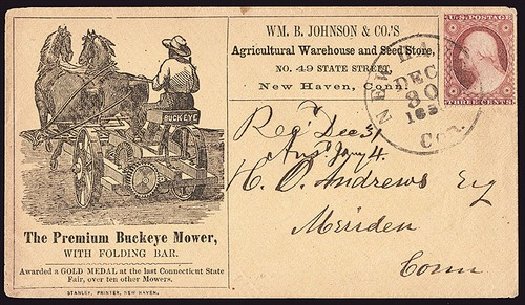 WM. B. JOHNSON & CO.'S
Agricultural Warehouse and Seed Store,
NO. 49 STATE STREET,
New Haven, Conn.
U.S. POSTAGE
THREE CENTS
NEW HAVEN
DEC
30
Con.
BUCKEYE
Rec'd Dec 31
Ans'd Jany 4.
H. D. Andrews Esq
Meriden
Conn
The Premium Buckeye Mower,
WITH FOLDING BAR.
Awarded a GOLD MEDAL at the last Connecticut State
Fair, over ten other Mowers.
STANLEY, PRINTER, NEW HAVEN.